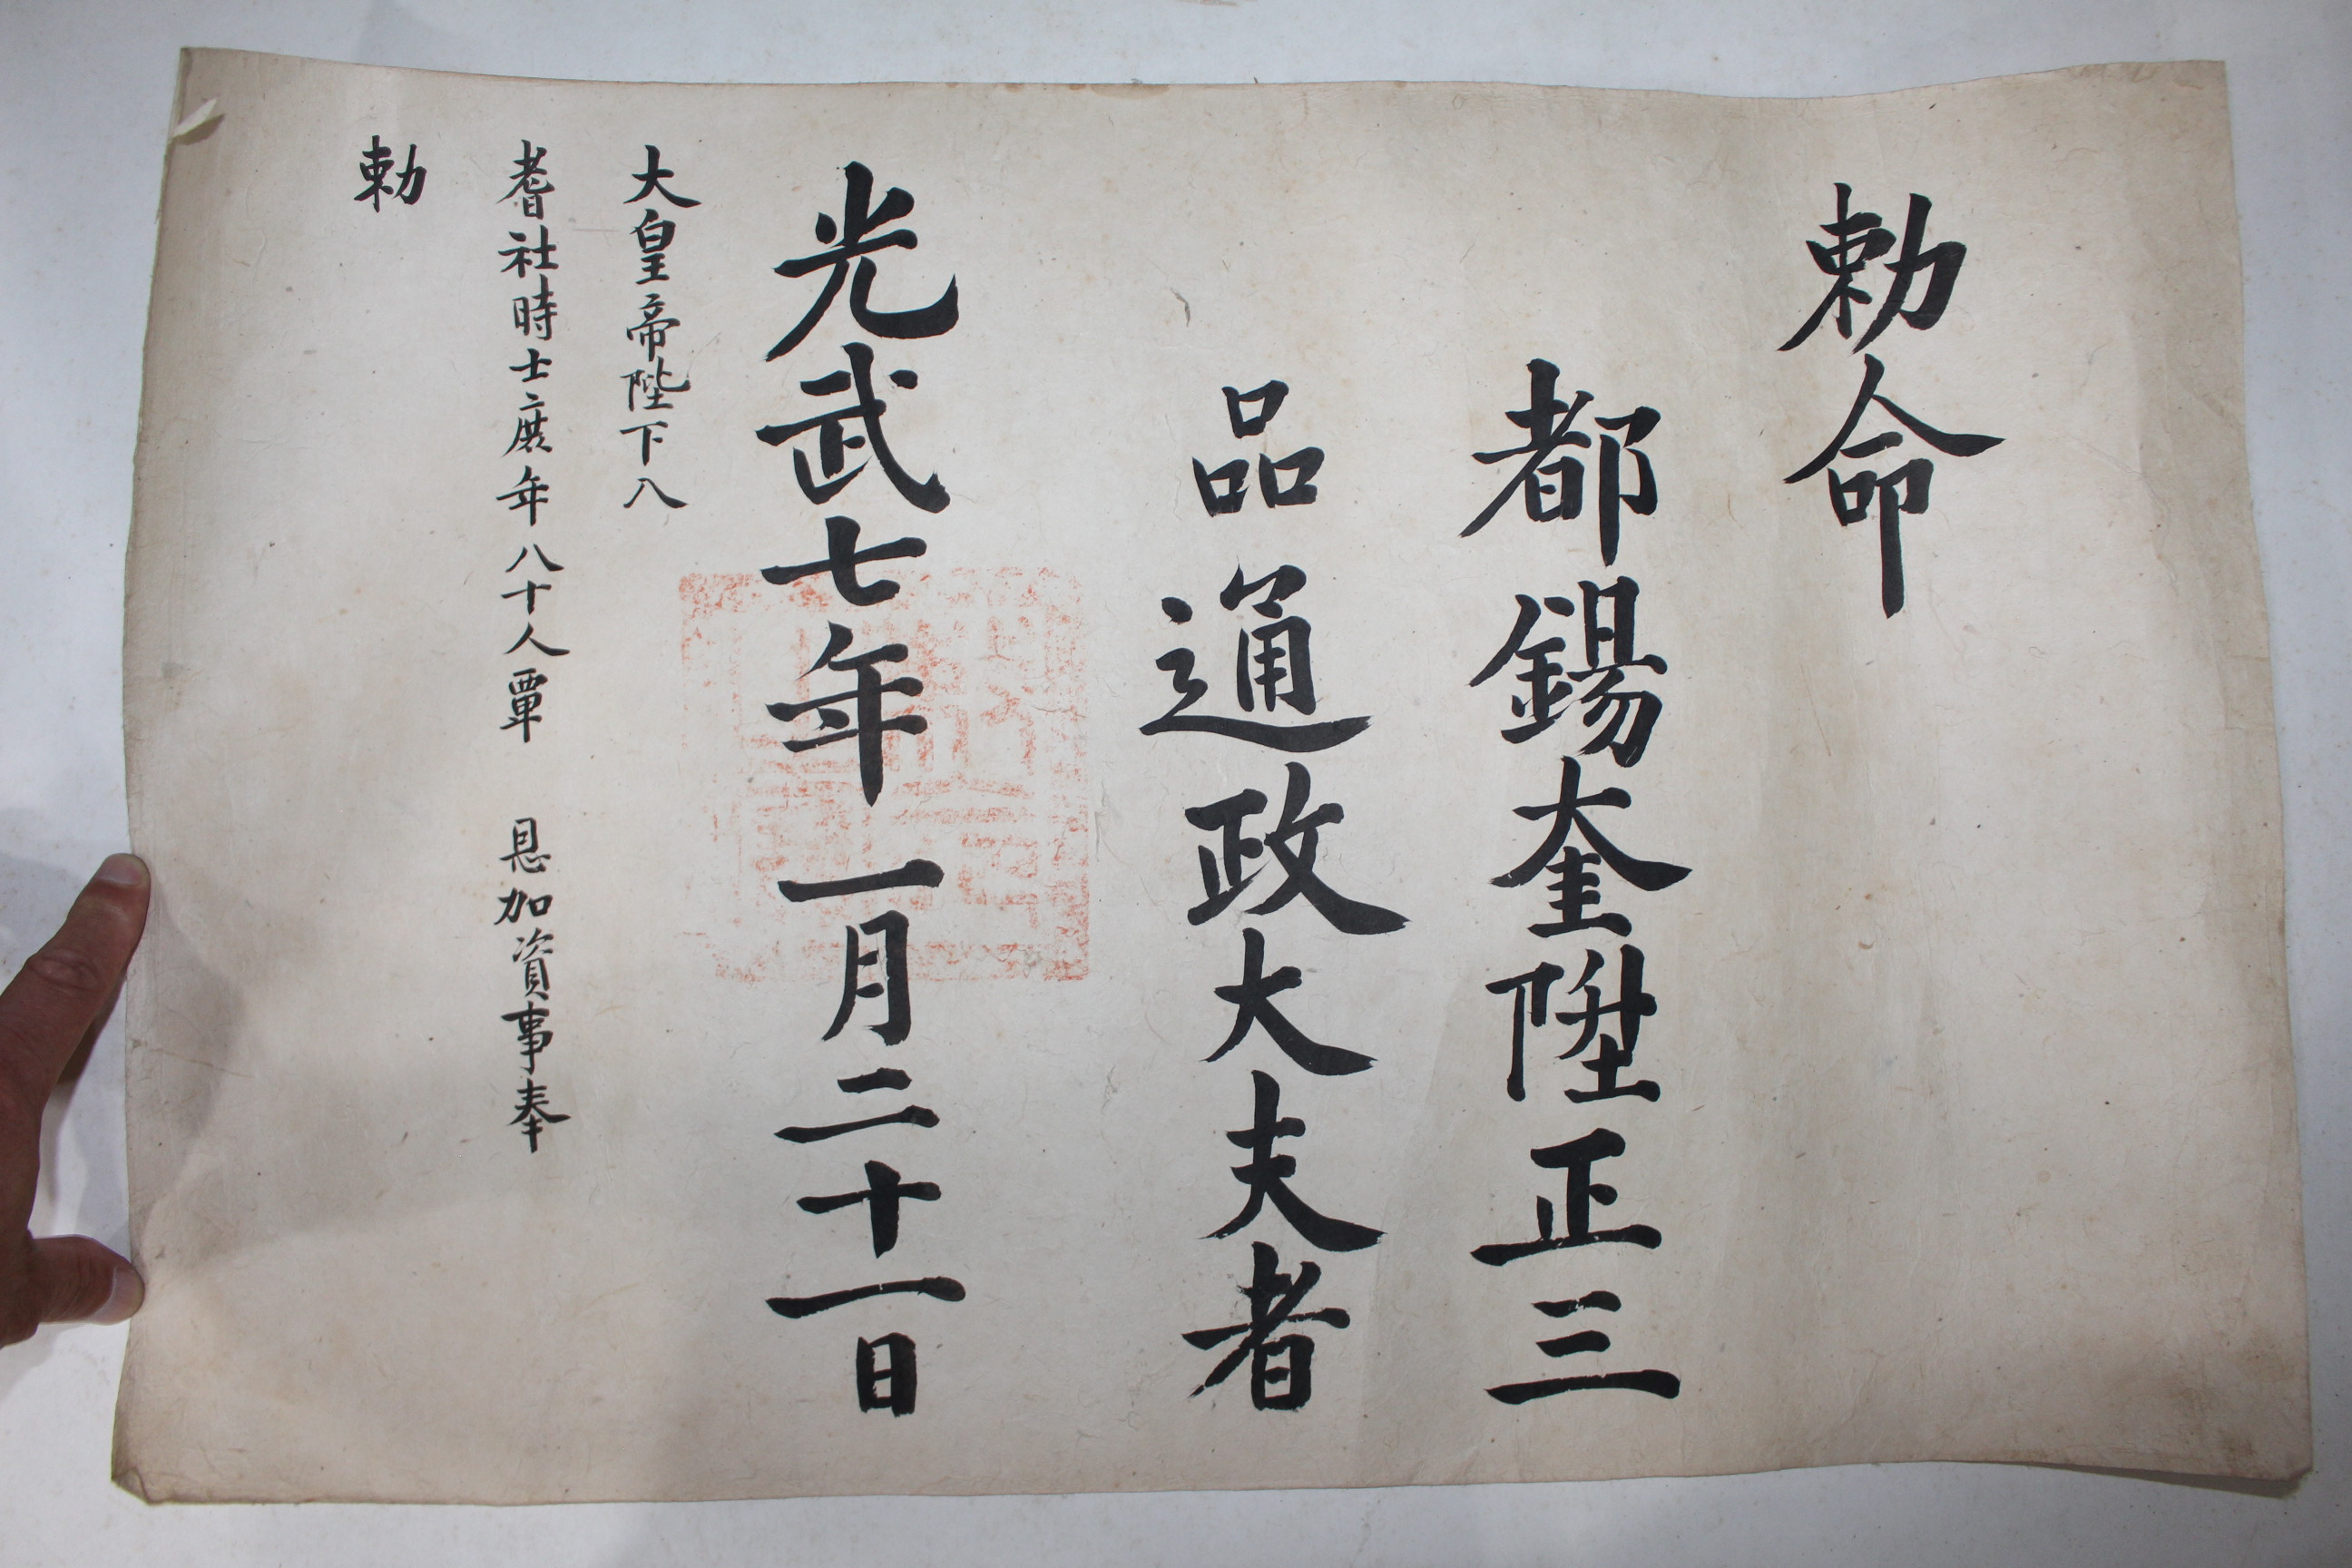 勅命
都錫奎陞正三
品通政大夫者
光武七年一月二十一日
大皇帝陛下入
耆社時士庶年八十人覃 恩加資事奉
勅